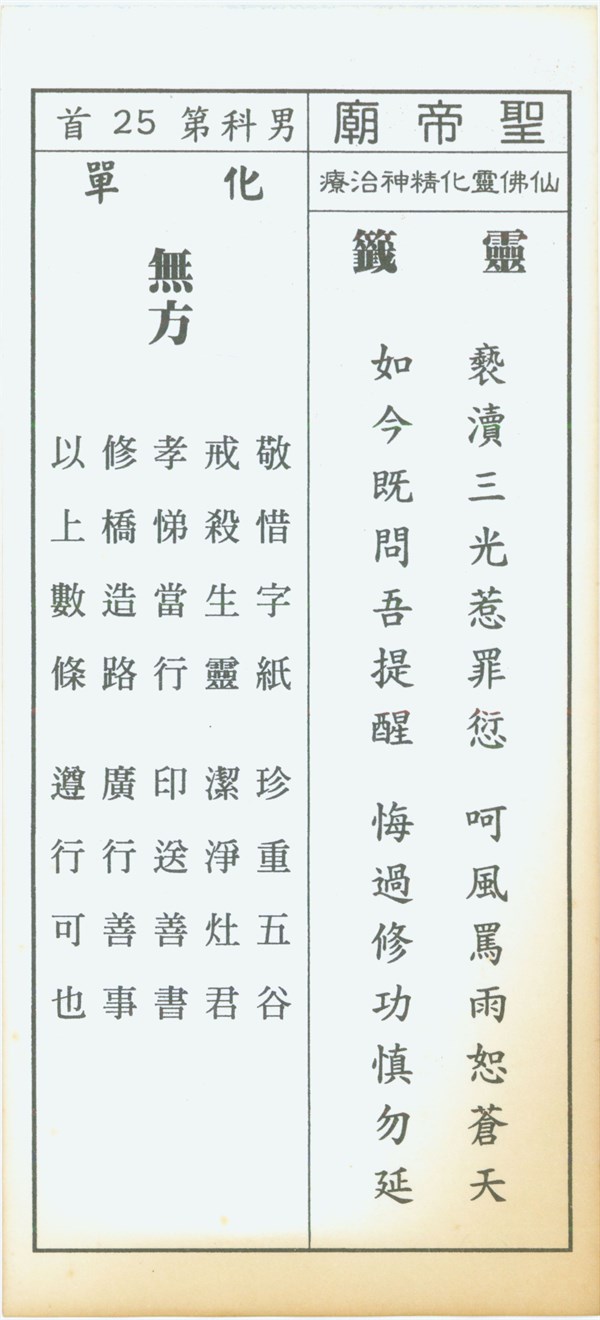 聖帝廟
仙佛靈化精神治療
靈籤
褻瀆三光惹罪愆 呵風罵雨恕蒼天
如今既問吾提醒 悔過修功慎勿延
男科第25首
化單
無方
敬惜字紙 珍重五谷
戒殺生靈 潔淨灶君
孝悌當行 印送善書
修橋造路 廣行善事
以上數條 遵行可也